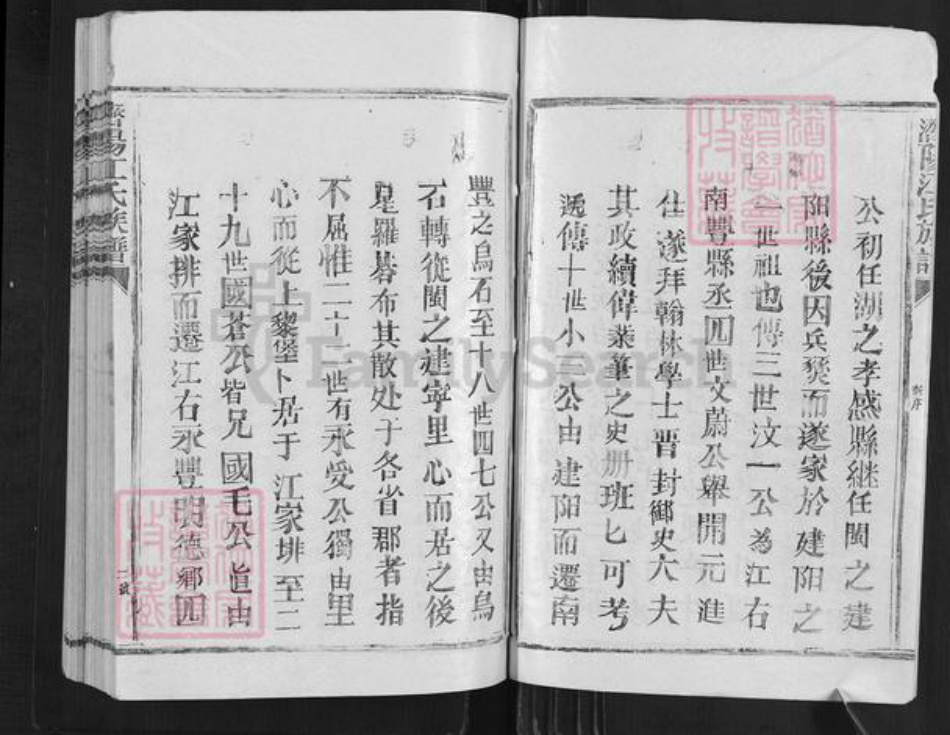 公初任湖之孝感縣継任閩之建
阳縣後因兵燹而遂家於建阳之
一世祖也傳三世汶一公為江右
南豐縣丞四世文蔚公舉開元進
仕遂拜翰林學士晋封御史大夫
其政續偉業筆之史册班匕可考
遞傳十世小一公由建阳而遷南
新序
豐之烏石至十八世四七公又由烏
石轉從閩之建寧里心而居之後
星羅碁布其散处于各省郡者指
不屈惟二十一世有永受公獨由里
心而從上黎堡卜居于江家排至二
十九世國蒼公皆兄國毛公皆由
江家排而遷江右永豐明德鄉四
江氏族譜
FamilySearch